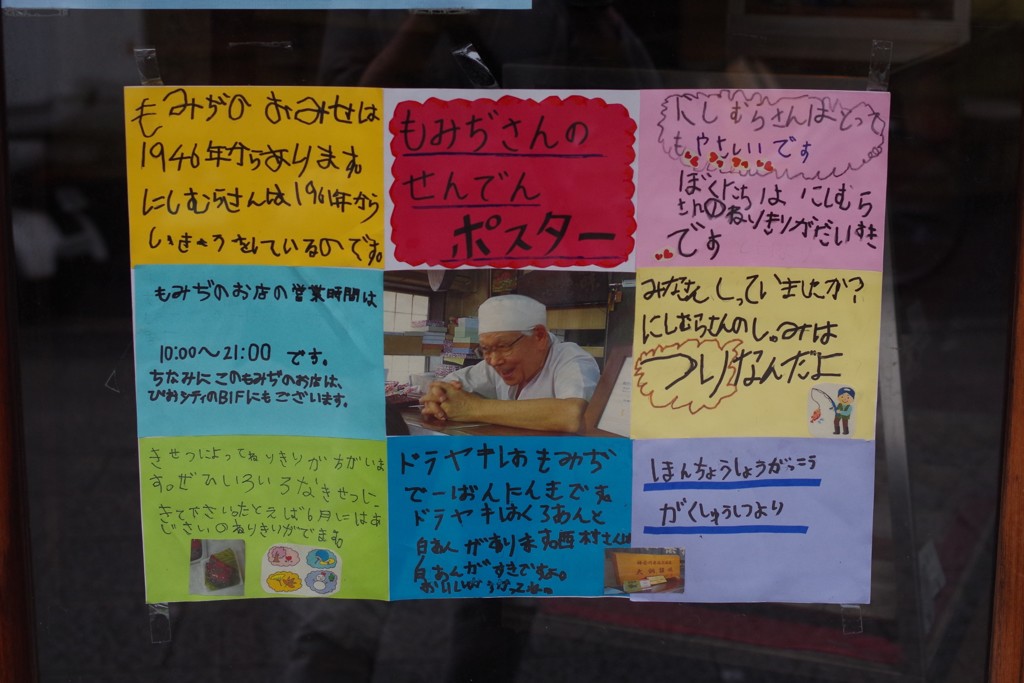 もみぢの おみせは
1946年からあります。
にしむらさんは1961年から
いきょうをしているのです。
もみぢさんの
せんでん
ポスター
にしむらさんはとって
もやさしいです
ぼくたちは にしむら
さんのねりきりがだいすき
です
もみぢのお店の営業時間は
10:00〜21:00 です。
ちなみにこのもみぢのお店は、
ぴおシティのB1Fにもございます。
みなさんしっていましたか?
にしむらさんのしゅみは
つりなんだよ
きせつによってねりきりが方がいま
す。ぜひいろいろなきせつに
きて下さい。たとえば6月にはあ
じさいのねりきりがでます。
ドラヤキはもみぢ
でーばんにんきです。
ドラヤキはくろあんと
白あんがあります。西村さんは
白あんがすきですよ。
ほんちょうしょうがっこう
がくしゅうしつより